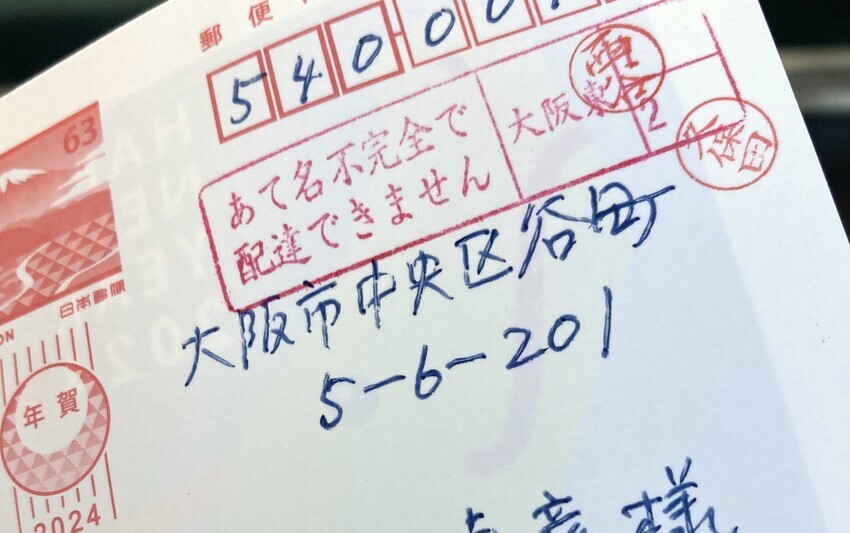 郵便
540-00
63
あて名不完全で
配達できません
大阪東
2
久保田
大阪市中央区谷町
5-6-201
日本郵便
年賀
2024
彦様